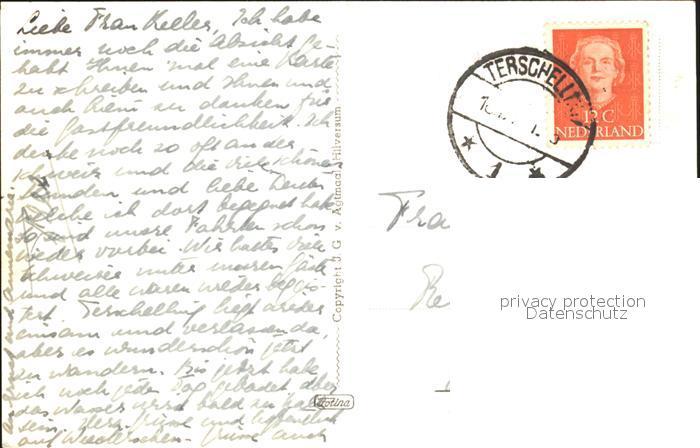 Liebe Frau Keller, Ich habe
immer noch die Absicht ge-
habt Ihnen 'mal eine Karte
zu schreiben und Ihnen und
auch zu danken für
die Gastfreundlichkeit. Ich
denke noch so oft an der
Schweiz und die viele schönen
Stunden und liebe Leute
welche ich dort begegnet habe
so sind unsre Fahrten schon
wieder vorbei. Wir hatten viele
Schweizer unter unseren Gäste
und alle waren wieder begeis-
tert. Terschelling liegt wieder
einsam und verlassen da,
aber es wunderschön jetzt
zu wandern. Bis jetzt habe
ich noch jeden Tag gebadet aber
das Wasser wird bald zu kalt
sein. Herz. Grüsse und hoffentlich
auf Wiedersehen. Grüsse auch
Copyright J. G. v. Agtmaal, Hilversum
TERSCHELLING
1
12 C
NEDERLAND
Fra
Re
privacy protection
Datenschutz